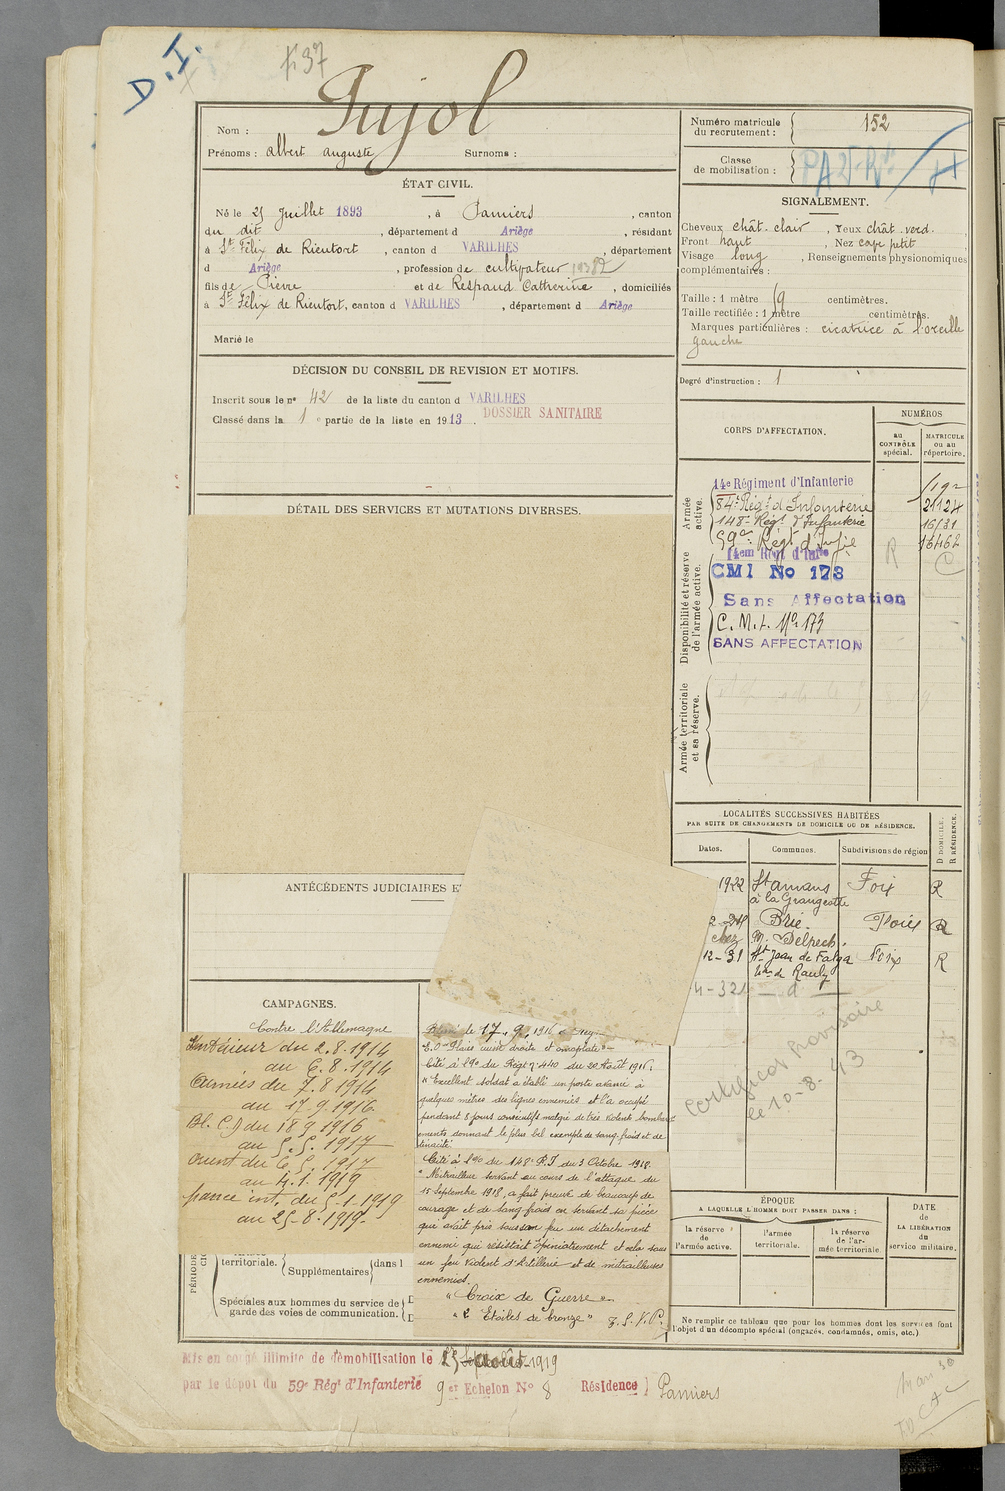 D.I.
437
Nom : Pujol
Prénoms : albert auguste Surnoms :
Numéro matricule du recrutement : 152
Classe de mobilisation :
ÉTAT CIVIL.
Né le 25 Juillet 1893, à Pamiers, canton
du dit, département d Ariège, résidant
à St Félix de Rieutort, canton d VARILHES, département
d Ariège, profession de cultivateur
fils de Pierre et de Respaud Catherine, domiciliés
à St Félix de Rieutort, canton d VARILHES, département d Ariège
Marié le
SIGNALEMENT.
Cheveux chât. clair, Yeux chât. verd.
Front haut, Nez petit
Visage long, Renseignements physionomiques
complémentaires :
Taille : 1 mètre 69 centimètres.
Taille rectifiée : 1 mètre centimètres.
Marques particulières : cicatrice à l'oreille
gauche
Degré d'instruction : 1
DÉCISION DU CONSEIL DE REVISION ET MOTIFS.
Inscrit sous le n° 42 de la liste du canton d VARILHES
Classé dans la 1e partie de la liste en 1913.
DOSSIER SANITAIRE
DÉTAIL DES SERVICES ET MUTATIONS DIVERSES.
CORPS D'AFFECTATION.
NUMÉROS
au CONTRÔLE spécial.
MATRICULE ou au répertoire.
Armée active.
14e Régiment d'Infanterie
84e Régt d'Infanterie 21124
148e Régt d'Infanterie 16131
59e Régt d'Infie 16462
Disponibilité et réserve de l'armée active.
14em Regt d'Infie
CMI No 173
Sans Affectation
C.M.I. No 173
SANS AFFECTATION
R
C
Armée territoriale et sa réserve.
LOCALITÉS SUCCESSIVES HABITÉES
PAR SUITE DE CHANGEMENTS DE DOMICILE OU DE RÉSIDENCE.
Dates. Communes. Subdivisions de région
D DOMICILE.
R RÉSIDENCE.
1922 St amans Foix R
à la Grangeotte
2-24 Brie Foix R
chez M. Delpech.
12-31 St Jean de Falga Foix R
4-32 d
certificat provisoire
le 10-8-43
ANTÉCÉDENTS JUDICIAIRES E
CAMPAGNES.
Contre l'Allemagne
Intérieur du 2.8.1914
au 6.8.1914
Armées du 7.8.1914
au 17.9.1916.
Bl. C.) du 18.9.1916
au 5.5.1917
Orient du 6.5.1917
au 4.1.1919
france int. du 5.1.1919
au 25.8.1919.
Blessé le 17.9.1916 à
E.O. Plaie cuisse droite et omoplate
Cité à l'O. du Régt n° 440 du 20 Août 1916.
"Excellent soldat a établi un poste avancé à
quelques mètres des lignes ennemies et l'a occupé
pendant 5 jours consécutifs malgré de très violent bombard
ements donnant le plus bel exemple de sang-froid et de
ténacité
Cité à l'O. du 148e R.I. du 3 Octobre 1918.
"Mitrailleur servant au cours de l'attaque du
15 Septembre 1918, a fait preuve de beaucoup de
courage et de sang-froid en servant sa pièce
qui avait pris sous son feu un détachement
ennemi qui résistait opiniâtrement et cela sous
un feu violent d'Artillerie et de mitrailleuses
ennemies.
"Croix de Guerre"
"2 Etoiles de bronze" T.S.V.P.
territoriale.
Supplémentaires dans l
Spéciales aux hommes du service de
garde des voies de communication.
ÉPOQUE
A LAQUELLE L'HOMME DOIT PASSER DANS :
la réserve de l'armée active.
l'armée territoriale.
la réserve de l'armée territoriale.
DATE de LA LIBÉRATION du service militaire.
Ne remplir ce tableau que pour les hommes dont les services font
l'objet d'un décompte spécial (engagés, condamnés, omis, etc.)
Mis en congé illimité de démobilisation le 25 août 1919
par le dépôt du 59e Régt d'Infanterie 9er Echelon No 8 Résidence Pamiers